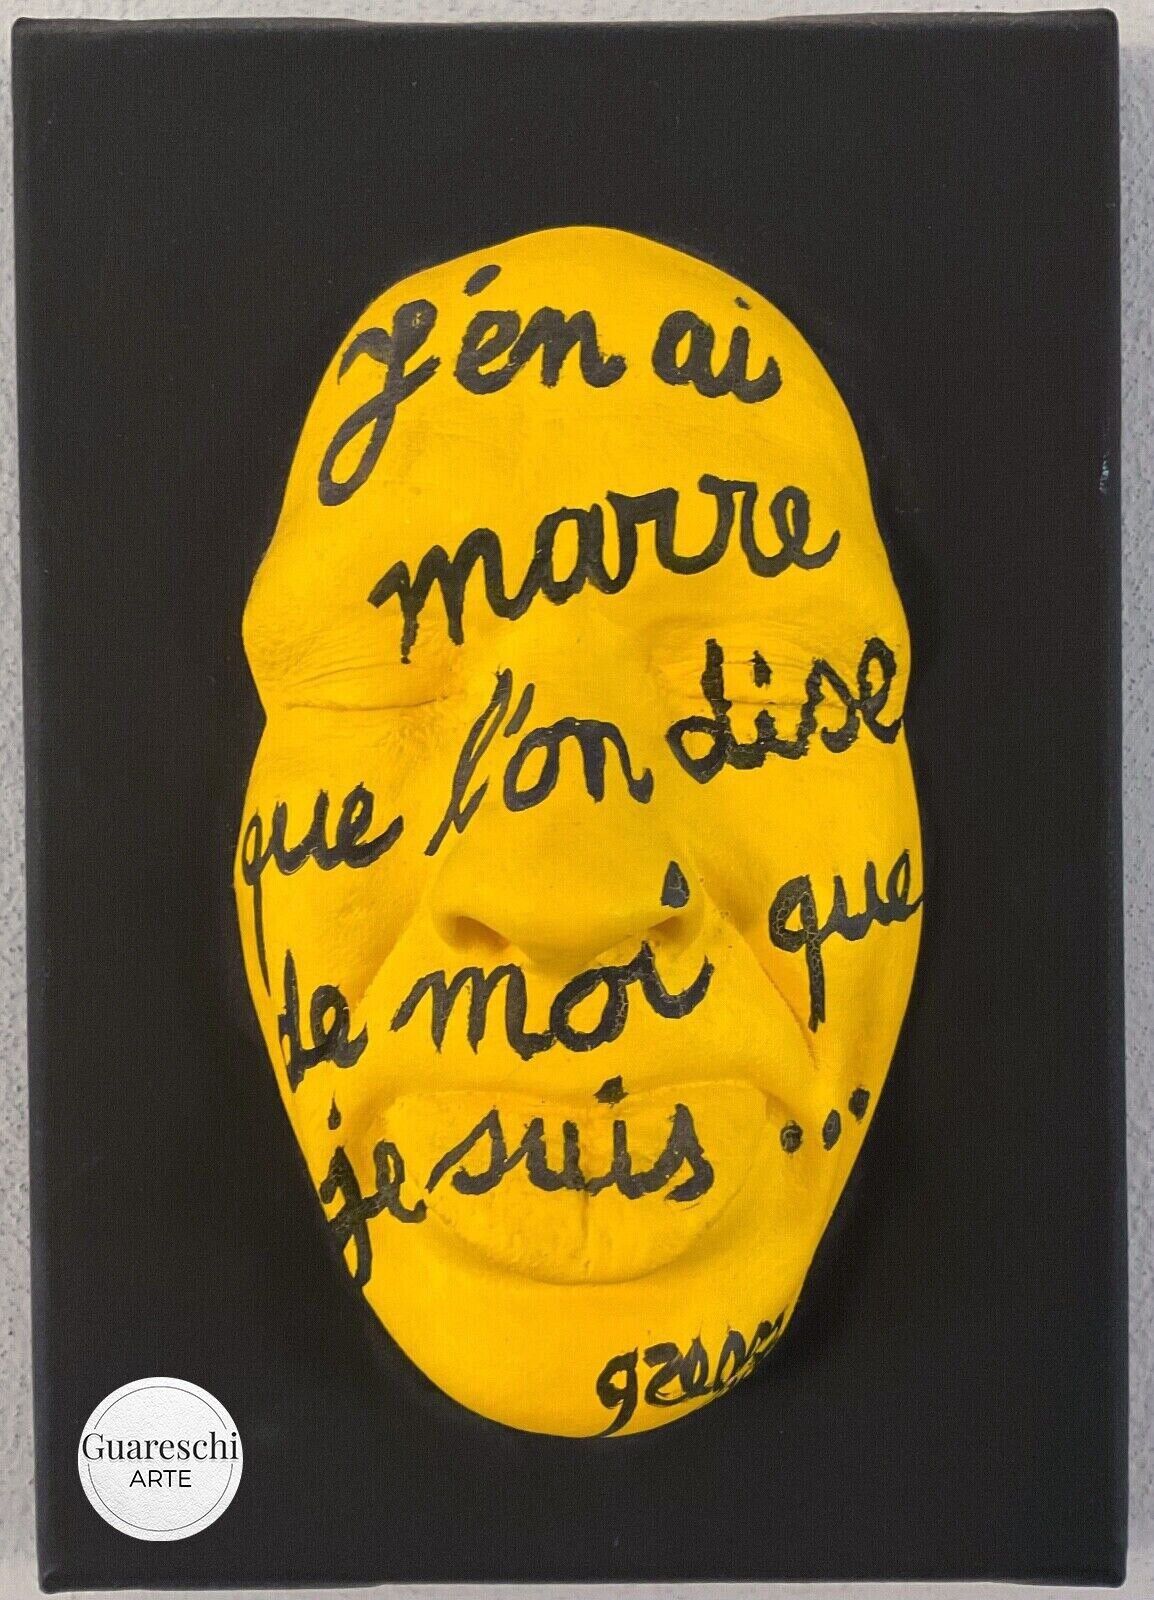 J'én ai
marre
que l'on dise
de moi que
je suis ...
Guareschi
ARTE